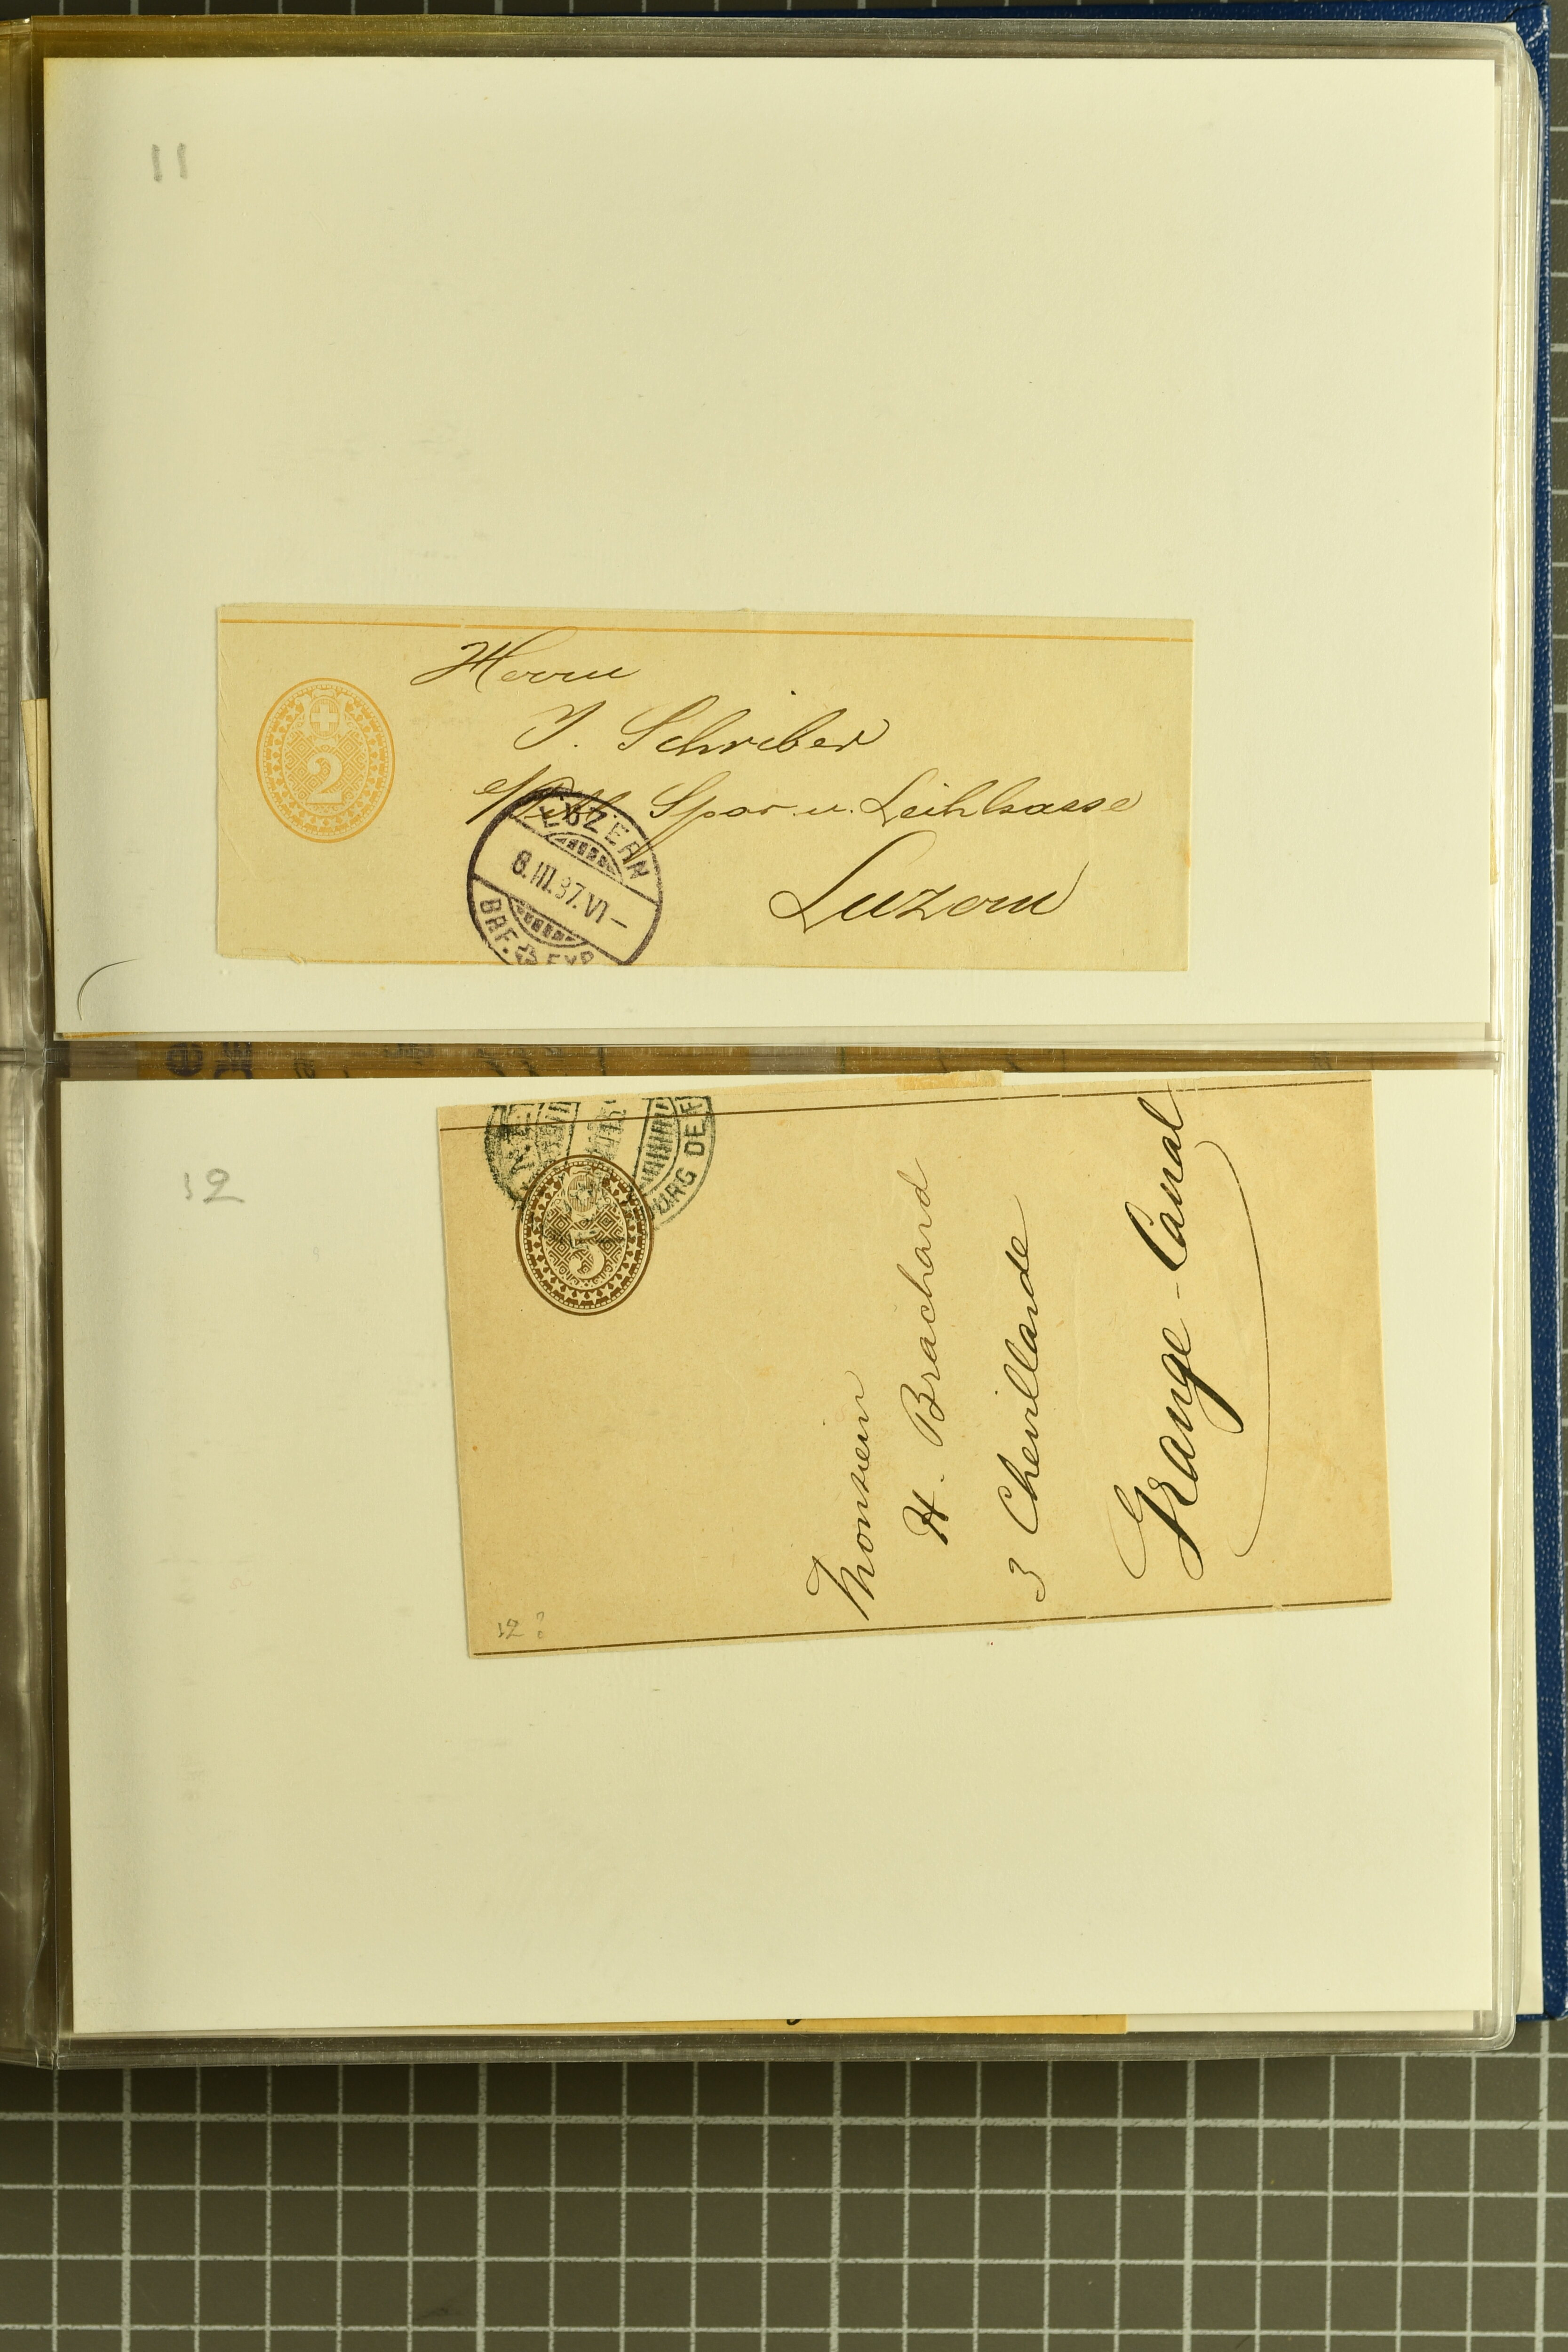 11
2
Herrn
J. Schriber
Spar u. Leihkasse
Luzern
LUZERN
8.III.87.VI–
BRF. EXP.
12
5
URG DE F
Monsieur
H. Brachard
3 Chevillarde
Grange-Canal
12?